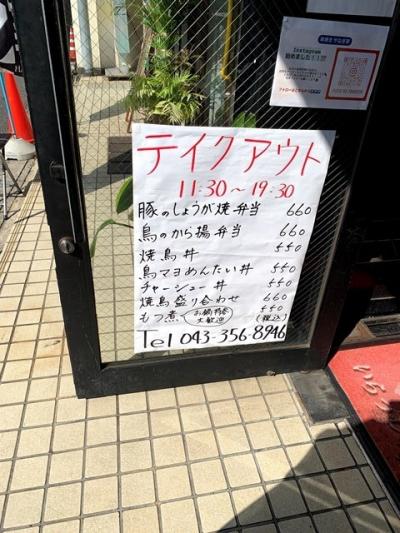 Instagram
始めました!!
テイクアウト
11:30～19:30
豚のしょうが焼弁当 660
鳥のから揚弁当 660
焼鳥丼 550
鳥マヨめんたい丼 550
チャーシュー丼 550
焼鳥盛り合わせ 660
もつ煮 お鍋持参大歓迎 550
(税込)
Tel 043-356-8946
いらっ